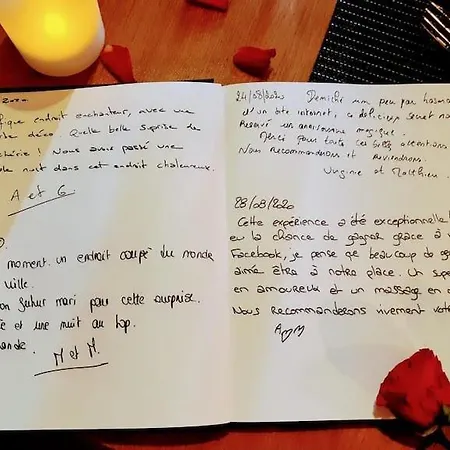 2020
endroit enchanteur, avec une
déco. Quelle belle surprise de
! Nous avons passé une
nuit dans cet endroit chaleureux.
A et G
moment. un endroit coupé du monde
ville.
futur mari pour cette surprise.
et une nuit au top.
M et M.
24/08/2020 Déniché un peu par hasard
d'un site internet, ce délicieux secret
un anniversaire magique.
Merci pour toutes ces belles attentions
Nous recommandons et reviendrons.
Virginie et Matthieu
28/08/2020
Cette expérience a été exceptionnelle!
eu la chance de gagner grâce à
Facebook, je pense que beaucoup de
aimé être à notre place. Un
en amoureux et un massage en
Nous recommanderons vivement
A♡M